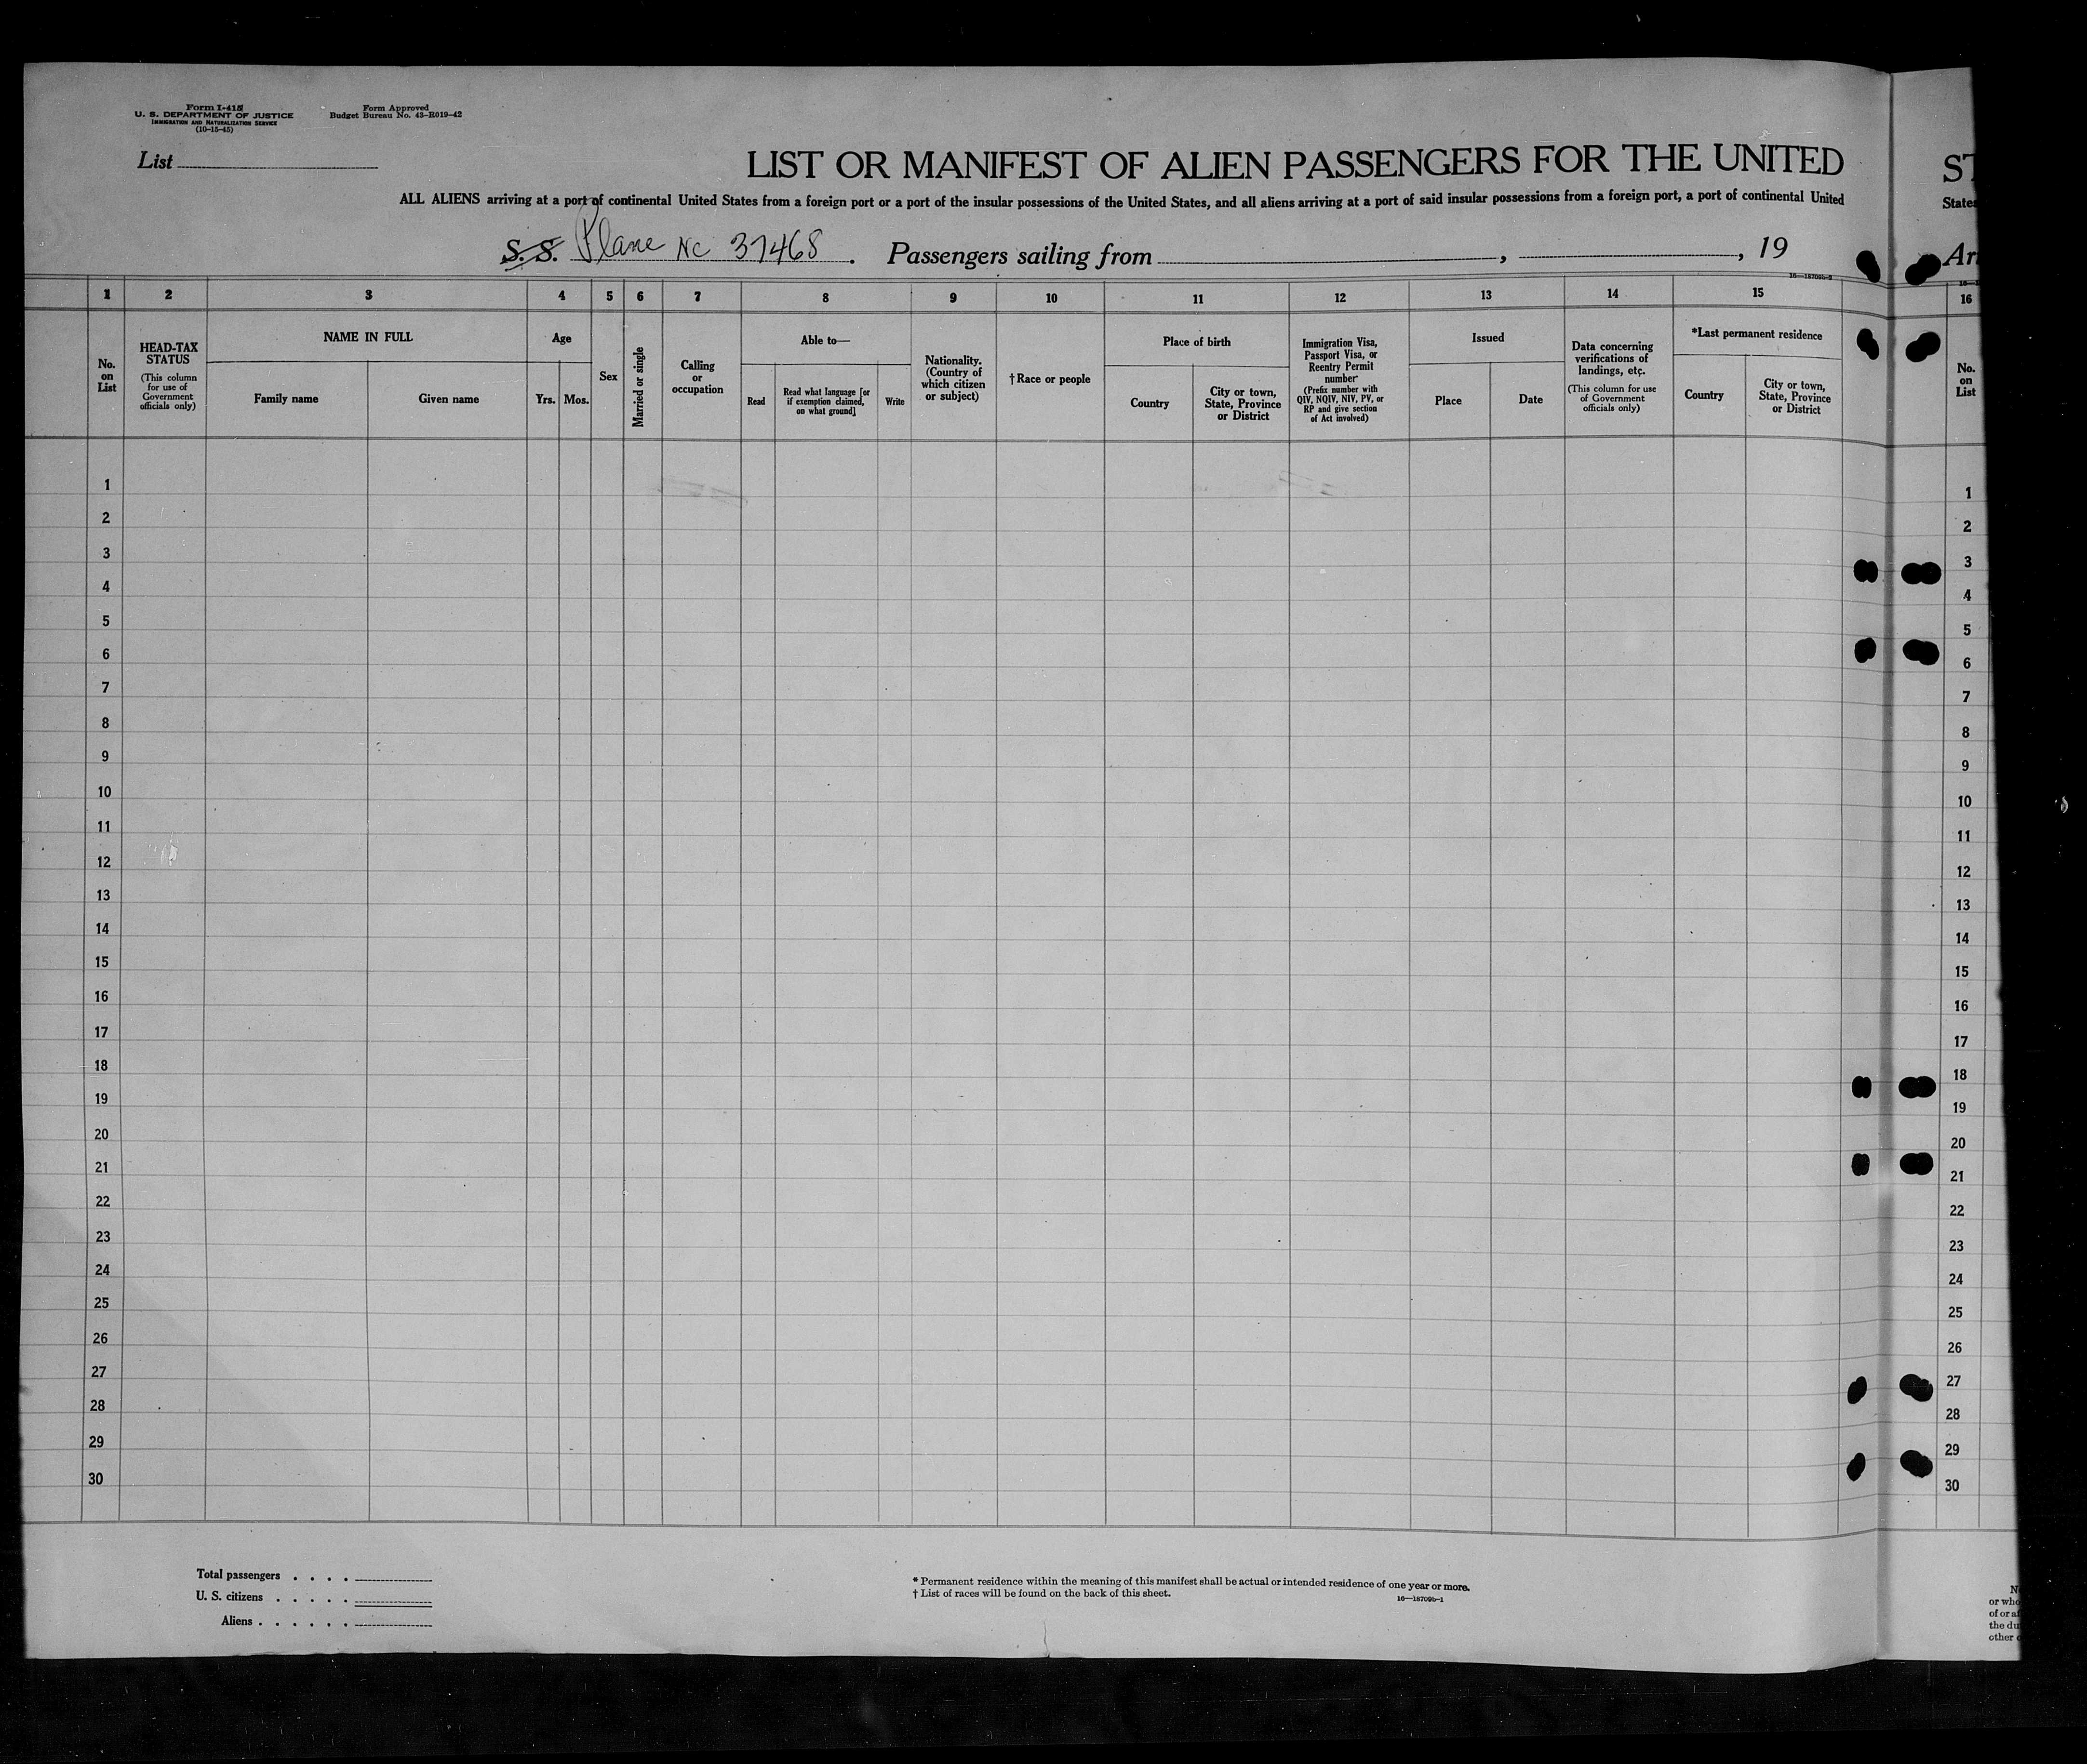 Form I-415
U. S. DEPARTMENT OF JUSTICE
IMMIGRATION AND NATURALIZATION SERVICE
(10-15-45)
Form Approved
Budget Bureau No. 43-R019-42
List
LIST OR MANIFEST OF ALIEN PASSENGERS FOR THE UNITED
ST
ALL ALIENS arriving at a port of continental United States from a foreign port or a port of the insular possessions of the United States, and all aliens arriving at a port of said insular possessions from a foreign port, a port of continental United
States
S. S. Plane NC 37468. Passengers sailing from , , 19
Ar
16—18709b-2
1 2 3 4 5 6 7 8 9 10 11 12 13 14 15
16
No.
on
List
HEAD-TAX
STATUS
(This column
for use of
Government
officials only)
NAME IN FULL
Family name
Given name
Age
Yrs.
Mos.
Sex
Married or single
Calling
or
occupation
Able to—
Read
Read what language [or
if exemption claimed,
on what ground]
Write
Nationality.
(Country of
which citizen
or subject)
†Race or people
Place of birth
Country
City or town,
State, Province
or District
Immigration Visa,
Passport Visa, or
Reentry Permit
number
(Prefix number with
QIV, NQIV, NIV, PV, or
RP and give section
of Act involved)
Issued
Place
Date
Data concerning
verifications of
landings, etc.
(This column for use
of Government
officials only)
*Last permanent residence
Country
City or town,
State, Province
or District
No.
on
List
1 1
2 2
3 3
4 4
5 5
6 6
7 7
8 8
9 9
10 10
11 11
12 12
13 13
14 14
15 15
16 16
17 17
18 18
19 19
20 20
21 21
22 22
23 23
24 24
25 25
26 26
27 27
28 28
29 29
30 30
Total passengers . . . .
U. S. citizens . . . . .
Aliens . . . . . .
* Permanent residence within the meaning of this manifest shall be actual or intended residence of one year or more.
† List of races will be found on the back of this sheet.
16—18709b-1
N
or who
of or a
the du
other